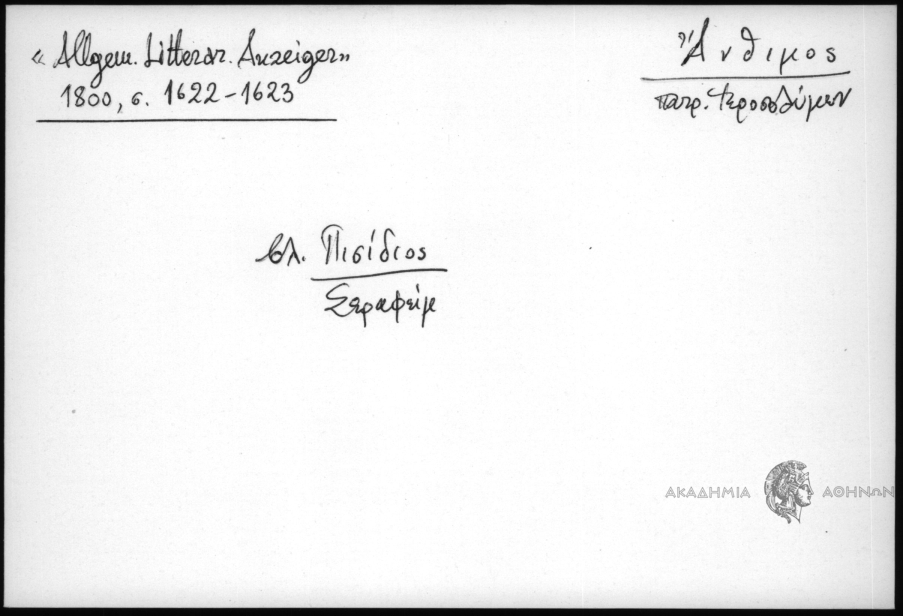 « Allgem. Litterar. Anzeiger»
1800, σ. 1622-1623
Ἄνθιμος
πατρ. Ἱεροσολύμων
βλ. Πισίδιος
Σεραφείμ
ΑΚΑΔΗΜΙΑ ΑΘΗΝΩΝ